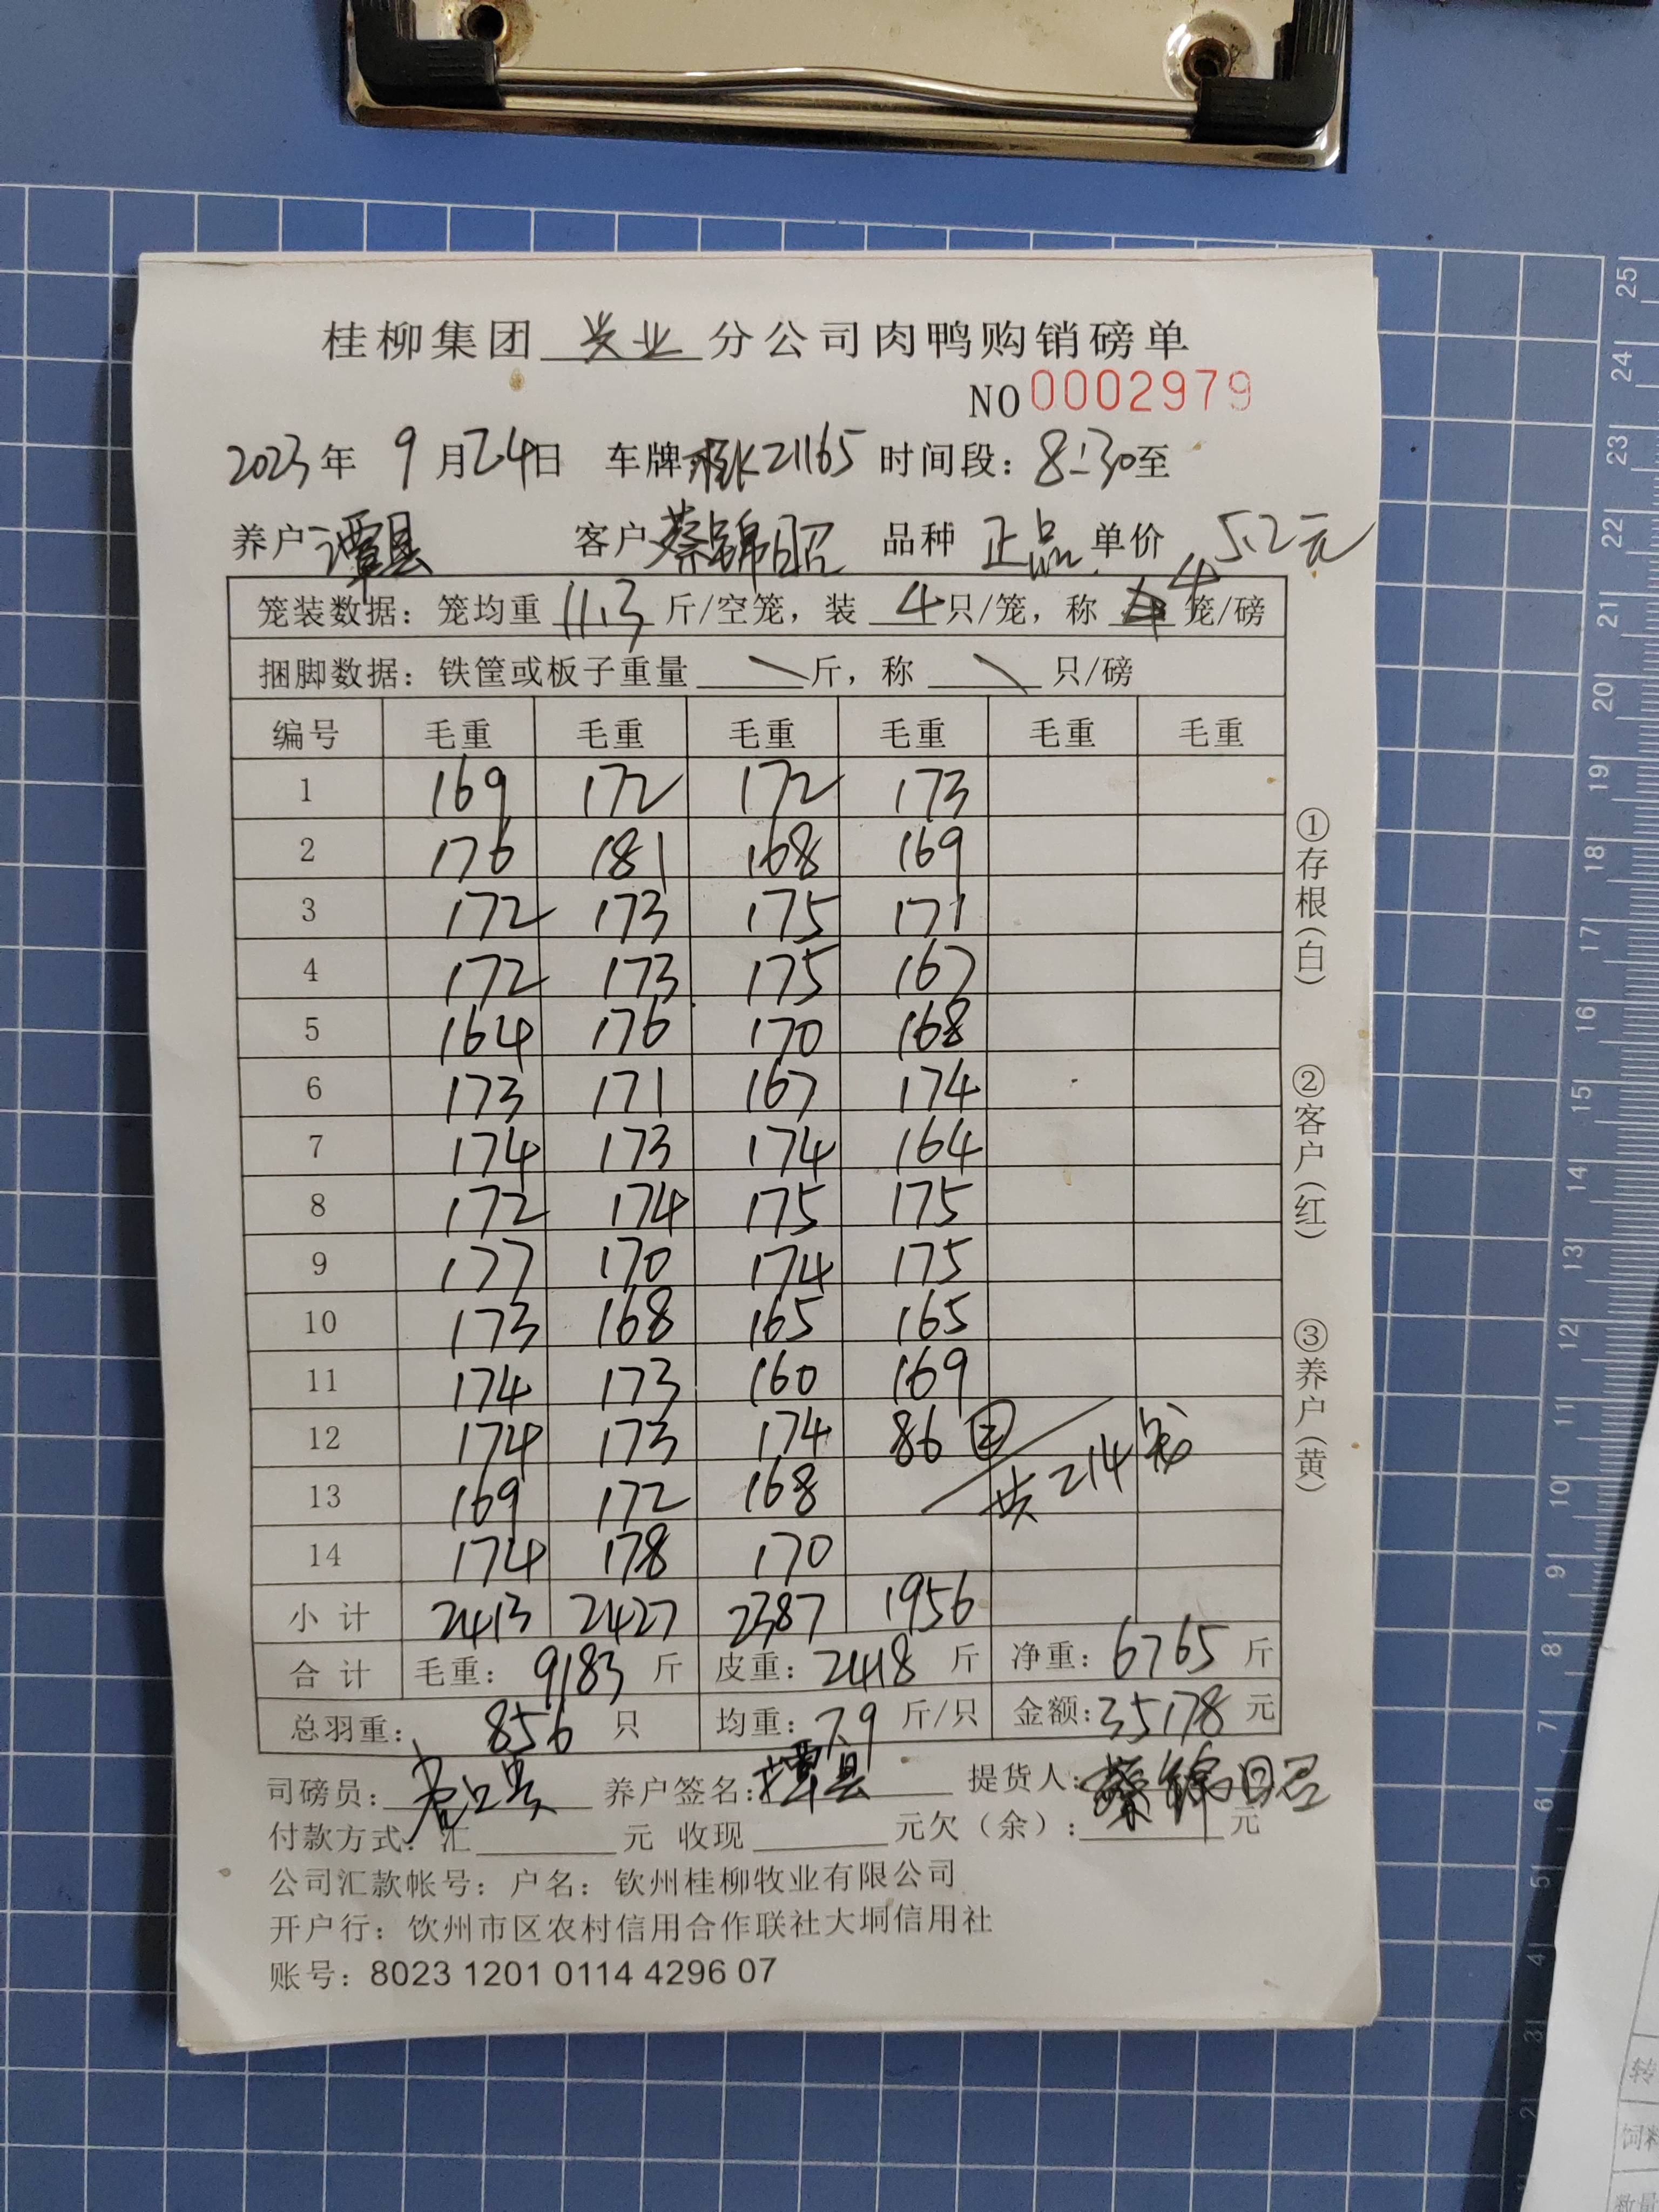 桂柳集团 兴业 分公司肉鸭购销磅单
NO 0002979
2023年 9月24日 车牌 K21165 时间段: 8:30至
养户 谭县 客户 蔡锦昭 品种 正品 单价 5.2元
笼装数据: 笼均重 11.3 斤/空笼, 装 4只/笼, 称 4 笼/磅
捆脚数据: 铁筐或板子重量 \ 斤, 称 \ 只/磅
编号 毛重 毛重 毛重 毛重 毛重 毛重
1 169 172 172 173
2 176 181 168 169
3 172 173 175 171
4 172 173 175 167
5 164 176 170 168
6 173 171 167 174
7 174 173 174 164
8 172 174 175 175
9 177 170 174 175
10 173 168 165 165
11 174 173 160 169
12 174 173 174 86 ②
共214笼
13 169 172 168
14 174 178 170
小计 2413 2427 2387 1956
合计 毛重: 9183 斤 皮重: 2418 斤 净重: 6765 斤
总羽重: 856 只 均重: 7.9 斤/只 金额: 35178 元
司磅员: 养户签名: 谭县 提货人: 蔡锦昭
付款方式: 汇 元 收现 元欠(余): 元
公司汇款帐号: 户名: 钦州桂柳牧业有限公司
开户行: 钦州市区农村信用合作联社大垌信用社
账号: 8023 1201 0114 4296 07
①存根(白)
②客户(红)
③养户(黄)
25
24
23
22
21
20
19
18
17
16
15
14
13
12
11
10
9
8
7
6
5
4
3
2
转
饲料
数量